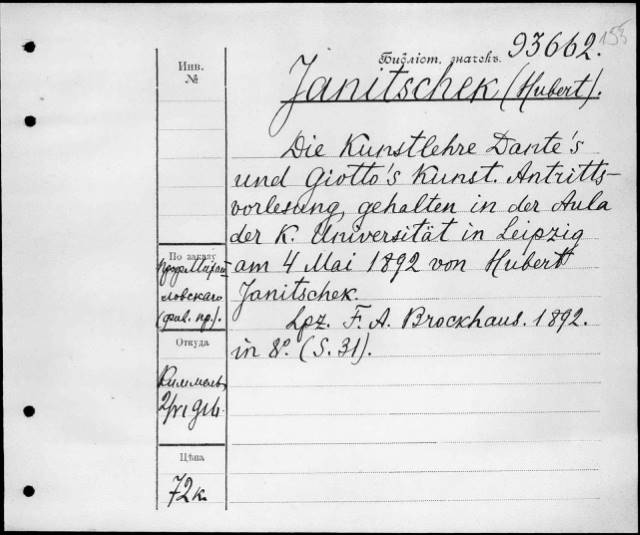 153
Библіот. значекъ 93662.
Инв.
№
Janitschek (Hubert).
Die Kunstlehre Dante's
und Giotto's Kunst. Antritts-
vorlesung, gehalten in der Aula
der K. Universität in Leipzig
am 4 Mai 1892 von Hubert
Janitschek.
Lpz. F. A. Brockhaus. 1892.
in 8º. (S. 31).
По заказу
ловскаго
Откуда
Киммель
Цѣна
72 к.